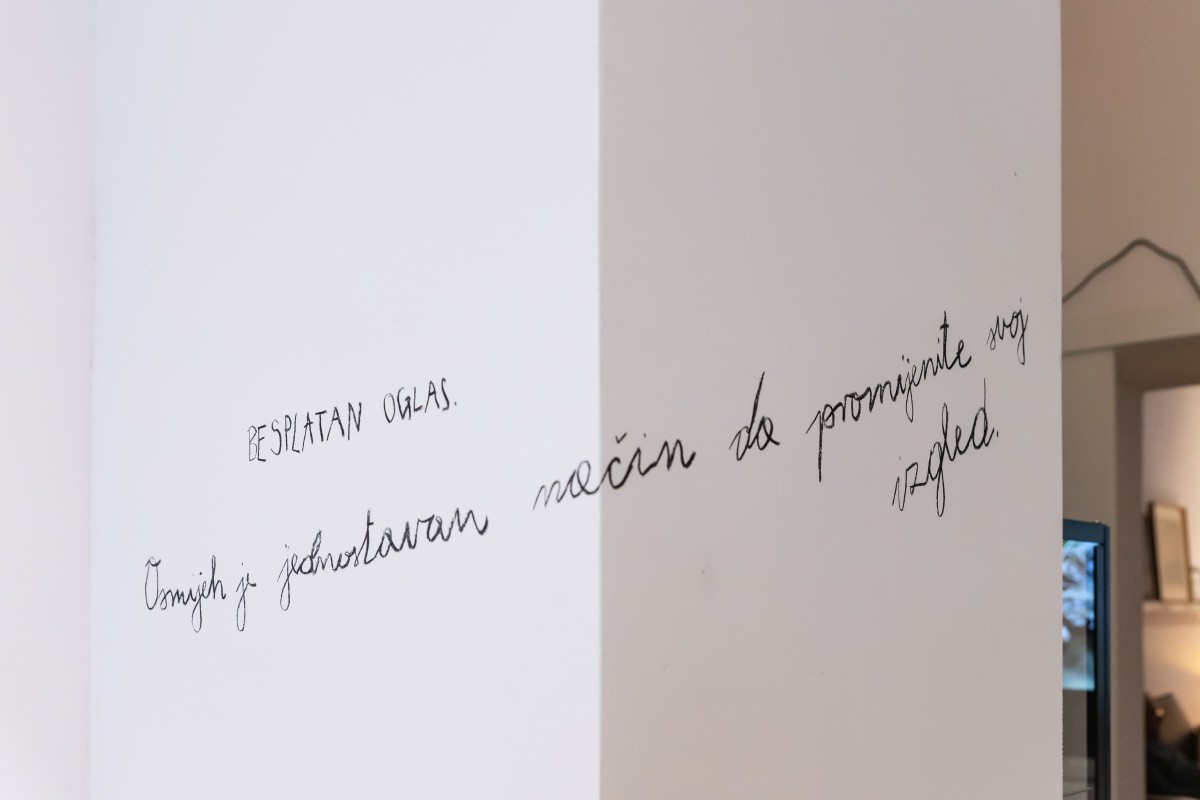 BESPLATAN OGLAS.
Osmijeh je jednostavan način da promijenite svoj
izgled.